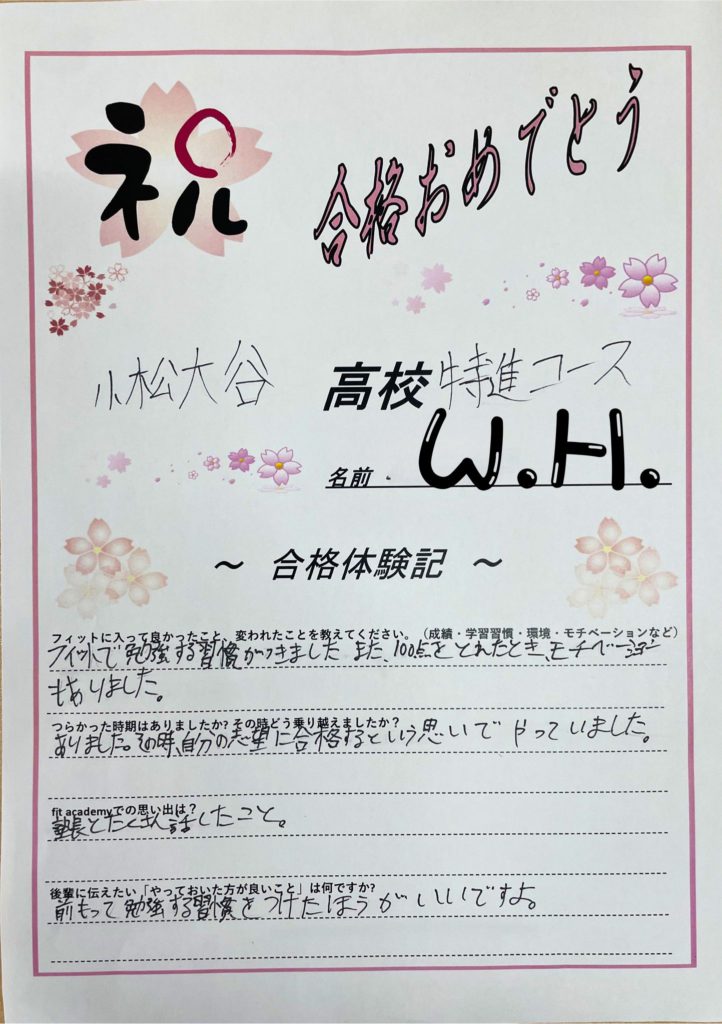 祝
合格おめでとう
小松大谷 高校 特進コース
名前 W.H.
～ 合格体験記 ～
フィットに入って良かったこと、変われたことを教えてください。（成績・学習習慣・環境・モチベーションなど）
フィットで勉強する習慣がつきました また、100点をとれたとき、モチベーション
もありました。
つらかった時期はありましたか? その時どう乗り越えましたか？
ありました。その時、自分の志望に合格するという思いでやっていました。
fit academyでの思い出は？
塾長とたくさん話したこと。
後輩に伝えたい「やっておいた方が良いこと」は何ですか?
前もって勉強する習慣をつけたほうがいいですよ。